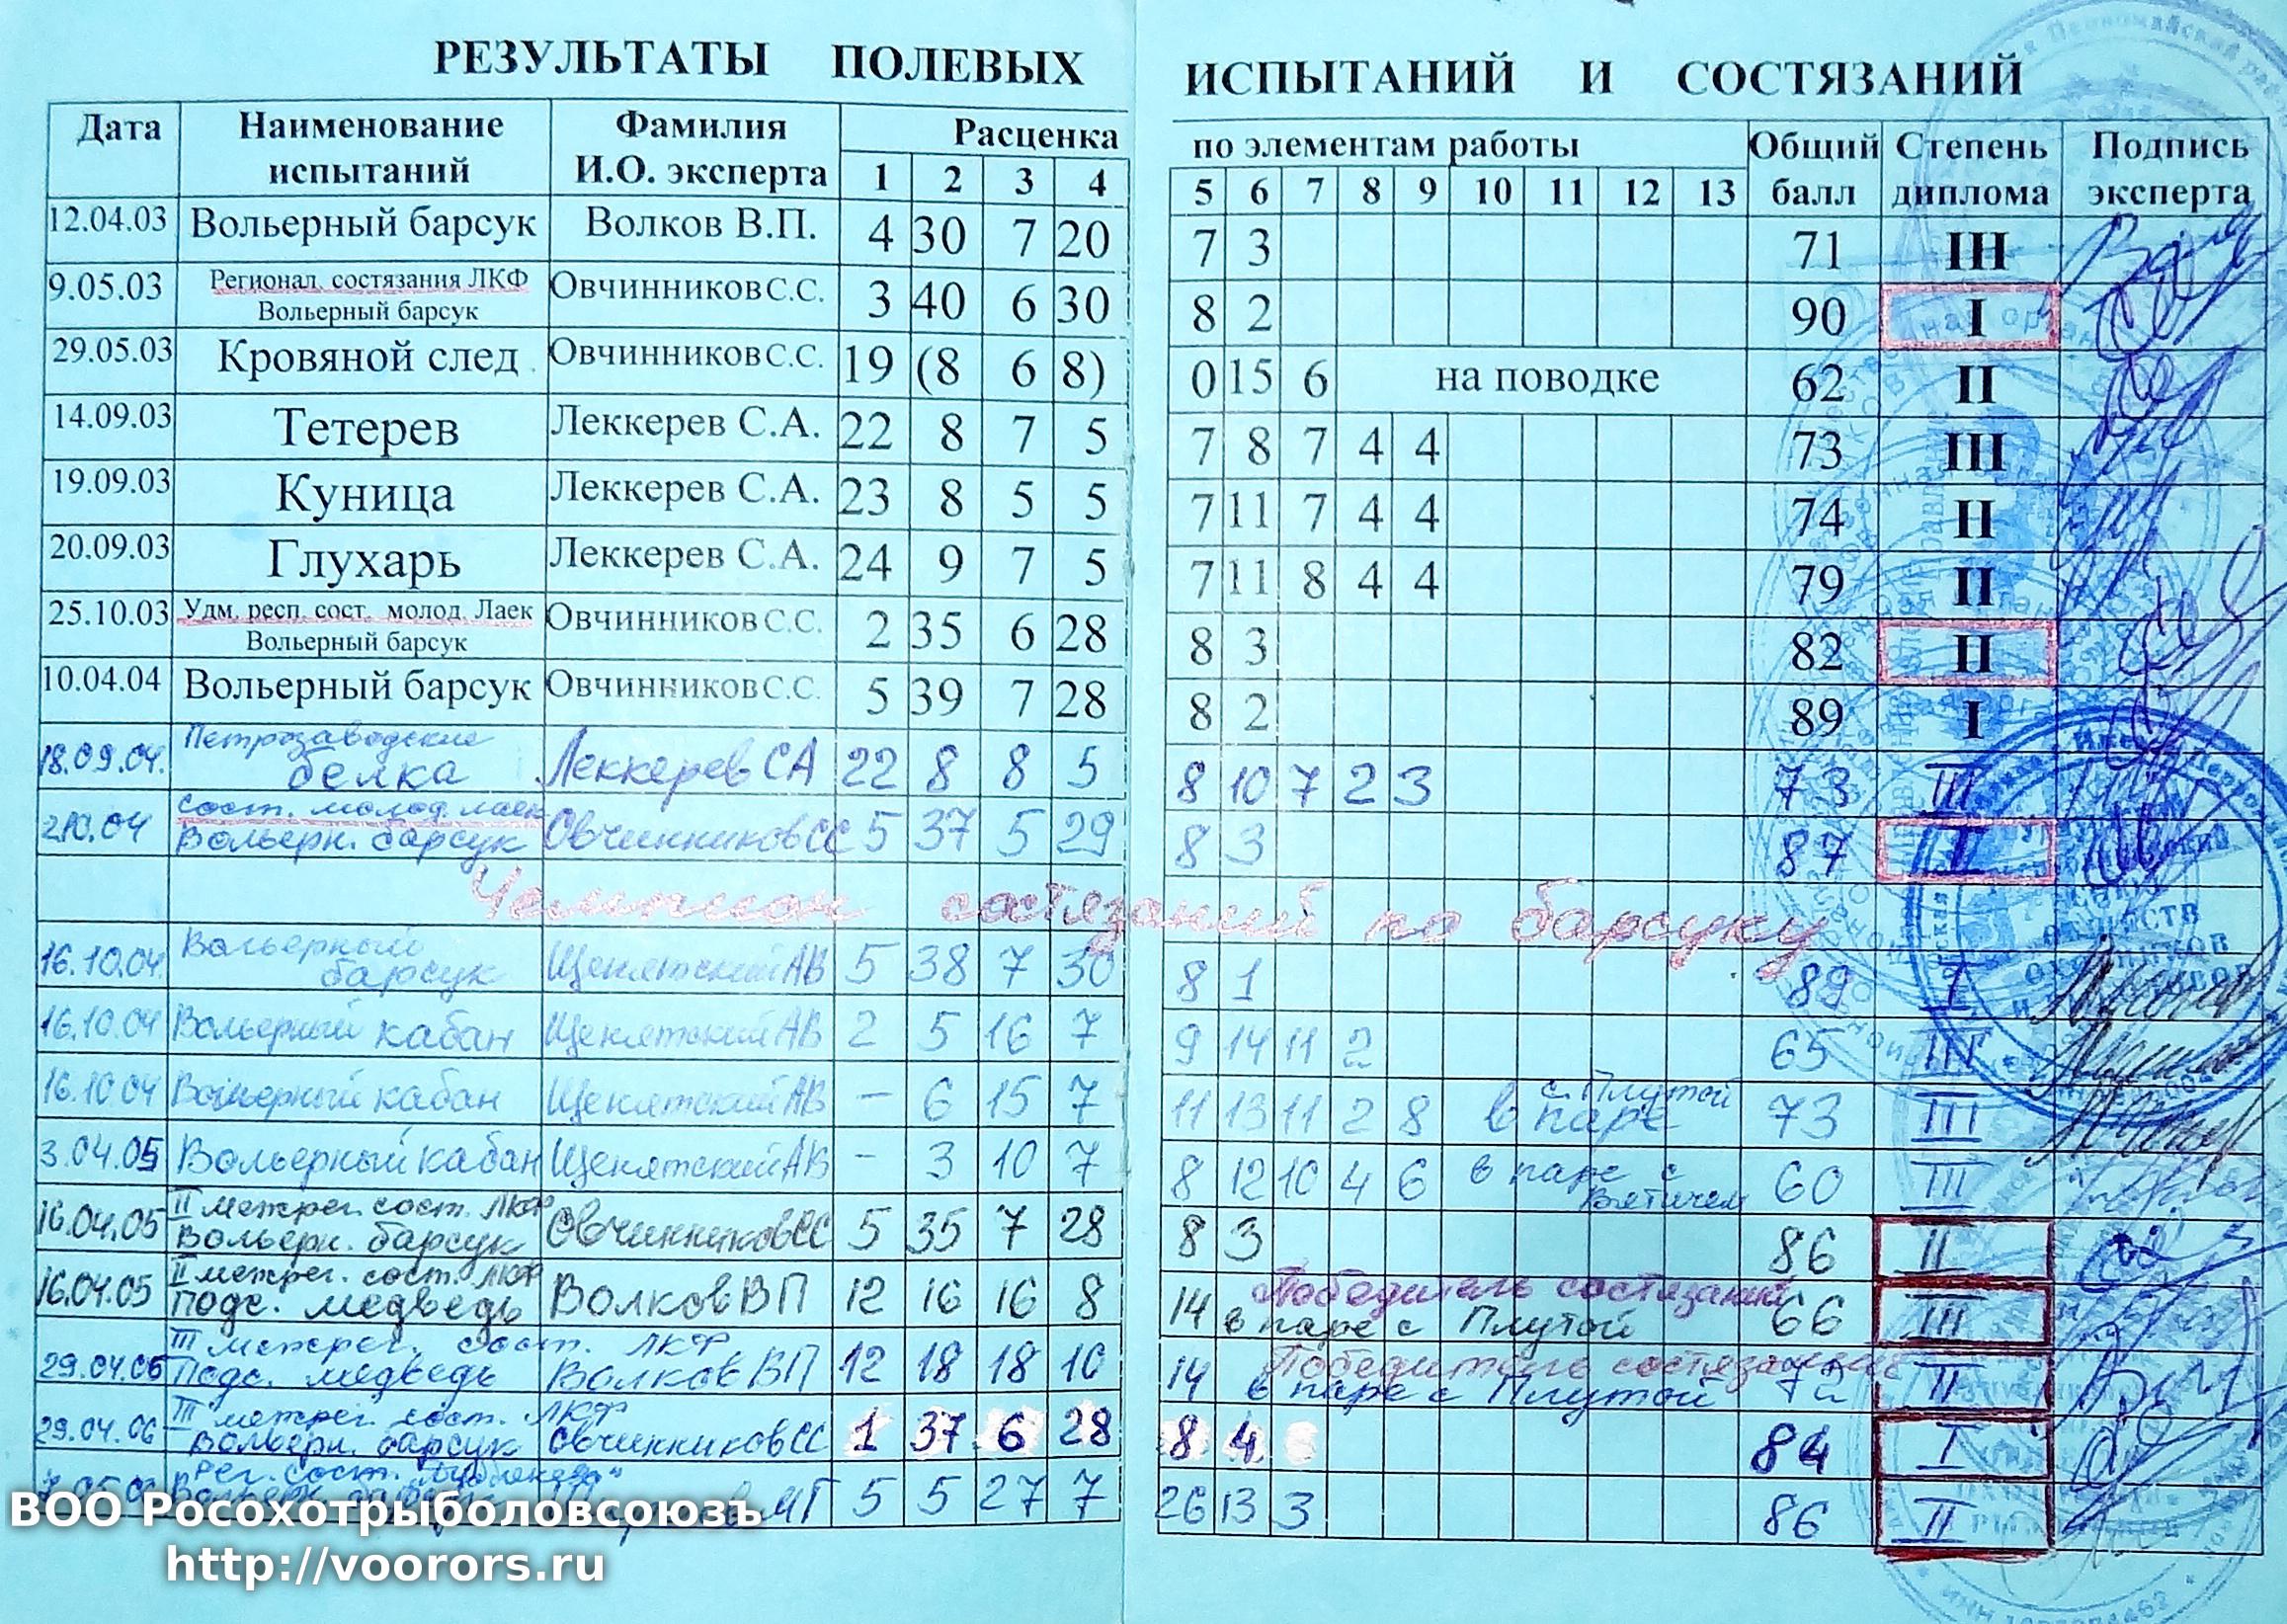 РЕЗУЛЬТАТЫ ПОЛЕВЫХ ИСПЫТАНИЙ И СОСТЯЗАНИЙ
Дата Наименование испытаний Фамилия И.О. эксперта Расценка по элементам работы Общий балл Степень диплома Подпись эксперта
1 2 3 4 5 6 7 8 9 10 11 12 13
12.04.03 Вольерный барсук Волков В.П. 4 30 7 20 7 3 71 III
9.05.03 Регионал. состязания ЛКФ Вольерный барсук Овчинников С.С. 3 40 6 30 8 2 90 I
29.05.03 Кровяной след Овчинников С.С. 19 (8 6 8) 0 15 6 на поводке 62 II
14.09.03 Тетерев Леккерев С.А. 22 8 7 5 7 8 7 4 4 73 III
19.09.03 Куница Леккерев С.А. 23 8 5 5 7 11 7 4 4 74 II
20.09.03 Глухарь Леккерев С.А. 24 9 7 5 7 11 8 4 4 79 II
25.10.03 Удм. респ. сост. молод. Лаек Вольерный барсук Овчинников С.С. 2 35 6 28 8 3 82 II
10.04.04 Вольерный барсук Овчинников С.С. 5 39 7 28 8 2 89 I
18.09.04. Петрозаводские белка Леккерев СА 22 8 8 5 8 10 7 2 3 73 III
2.10.04 сост. молод. лаек Вольерн. барсук Овчинников СС 5 37 5 29 8 3 87 I
Чемпион состязаний по барсуку
16.10.04 Вольерный барсук Щенятский АВ 5 38 7 30 8 1 89 I
16.10.04 Вольерный кабан Щенятский АВ 2 5 16 7 9 14 11 2 65 III
16.10.04 Вольерный кабан Щенятский АВ - 6 15 7 11 13 11 2 8 в паре с Плутой 73 III
3.04.05 Вольерный кабан Щенятский АВ - 3 10 7 8 12 10 4 6 в паре с Вятичем 60 III
16.04.05 II межрег. сост. ЛКФ Вольерн. барсук Овчинников СС 5 35 7 28 8 3 86 II
16.04.05 II межрег. сост. ЛКФ подс. медведь Волков ВП 12 16 16 8 14 Победитель состязаний в паре с Плутой 66 III
29.04.06 III межрег. сост. ЛКФ Подс. медведь Волков ВП 12 18 18 10 14 Победитель состязаний в паре с Плутой 72 II
29.04.06 III межрег. сост. ЛКФ Вольерн. барсук Овчинников СС 1 37 6 28 8 4 84 I
Рег. сост. Вольерн. МГ 5 5 27 7 26 13 3 86 II
ВОО Росохотрыболовсоюзъ
http://voorors.ru